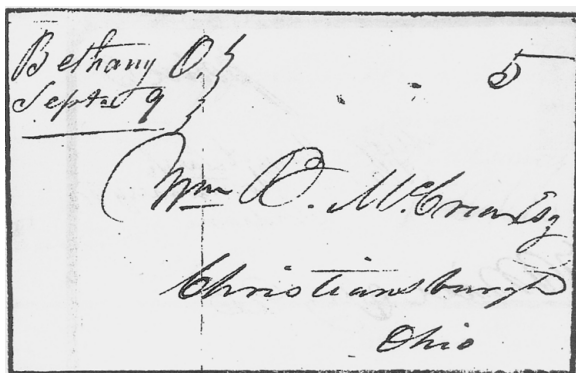 Bethany O.
5
Sept. 9
Wm B. McCrea Esq
Christiansburgh
Ohio